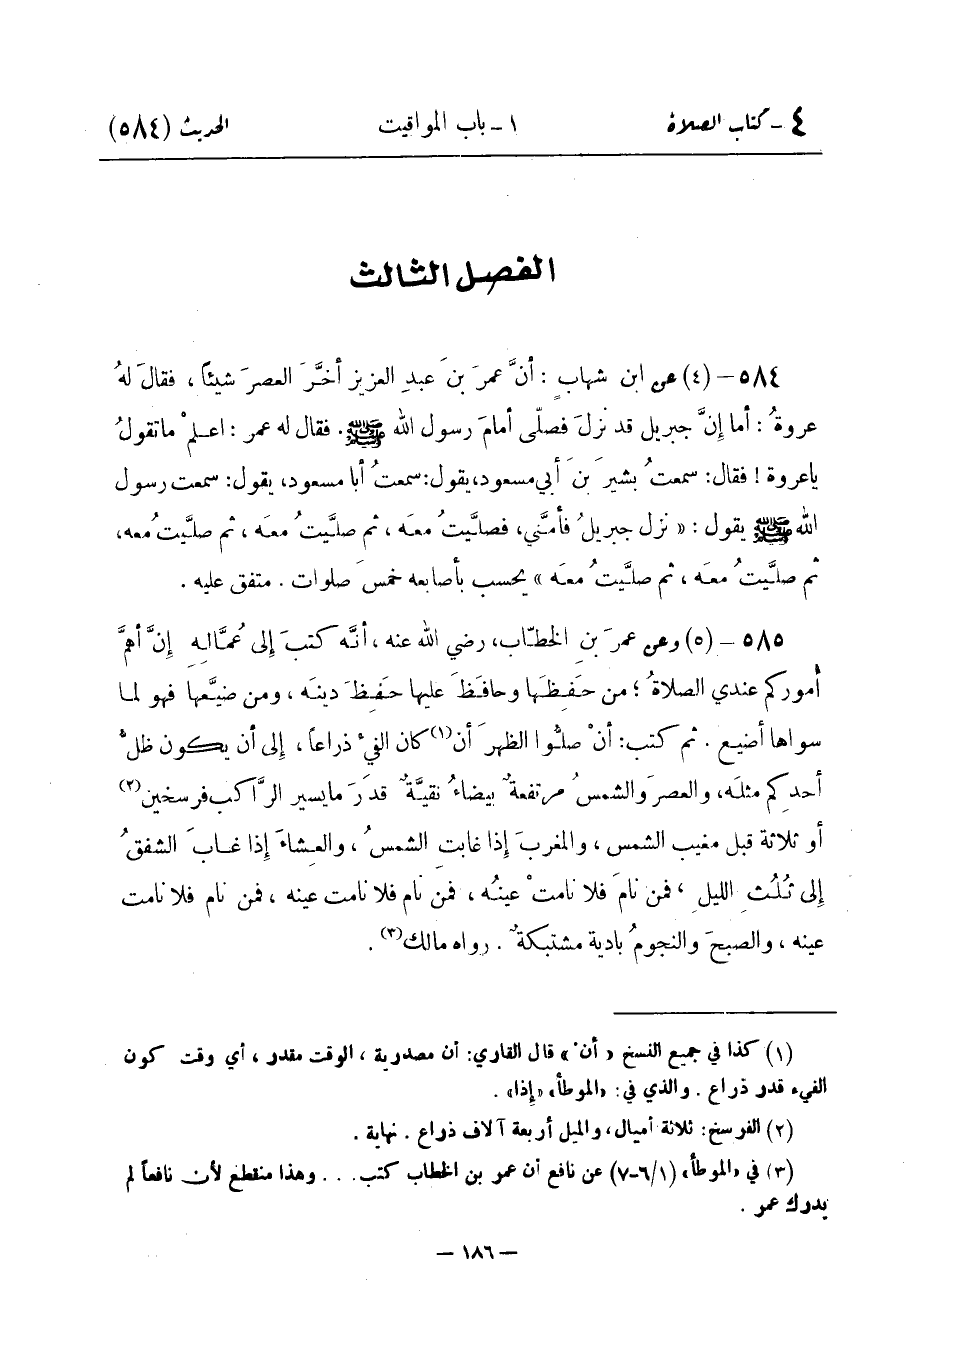 ٤ - كتاب الصلاة ١ - باب المواقيت الحديث (٥٨٤)
الفصل الثالث
٥٨٤ – (٤) عن ابن شهابٍ : أنَّ عمرَ بنَ عبدِ العزيزِ أخَّرَ العصرَ شيئاً ، فقالَ لهُ
عروةُ : أما إنَّ جبريل قد نزلَ فصلّى أمامَ رسول الله ﷺ. فقال له عمر : اعلمْ ماتقولُ
ياعروة ! فقال: سمعتُ بشيرَ بنَ أبي مسعود،يقول:سمعتُ أبا مسعود، يقول: سمعت رسول
الله ﷺ يقول : « نزل جبريلُ فأمَّني، فصلَّيتُ معَه ، ثم صلَّيتُ معَه ، ثم صلَّيتُ معه،
ثم صلَّيتُ معَه ، ثم صلَّيتُ معَه » يحسب بأصابعه خمسَ صلوات . متفق عليه .
٥٨٥ – (٥) وعن عمرَ بنِ الخطّاب، رضي الله عنه ، أنَّه كتبَ إلى عُمَّالِهِ إنَّ أهمَّ
أموركم عندي الصلاةُ ؛ من حَفِظَها وحافَظَ عليها حفِظَ دينَه ، ومن ضيَّعها فهو لما
سواها أضيع . ثم كتب: أنْ صلُّوا الظهرَ أن(١) كان الفيءُ ذراعاً ، إلى أن يكون ظلُّ
أحدِكم مثلَه، والعصرَ والشمسُ مرتفعةٌ بيضاءُ نقيَّةٌ قدرَ مايسير الرَّاكب فرسخين(٢)
أو ثلاثة قبل مغيب الشمس ، والمغربَ إذا غابتِ الشمسُ ، والعِشاءَ إذا غابَ الشفقُ
إلى ثُلُثِ الليلِ ، فمن نامَ فلا نامتْ عينُه ، فمن نام فلا نامت عينه ، فمن نام فلا نامت
عينه ، والصبحَ والنجومُ بادية مشتبكةٌ . رواه مالك(٣) .
(١) كذا في جميع النسخ « أنْ » قال القاري: أن مصدرية ، الوقت مقدر ، أي وقت كون
الفيء قدر ذراع . والذي في: «الموطأ» «إذا» .
(٢) الفرسخ: ثلاثة أميال، والميل أربعة آلاف ذراع . نهاية .
(٣) في «الموطأ» (١/٦-٧) عن نافع أن عمر بن الخطاب كتب. . . وهذا منقطع لأن نافعاً لم
يدرك عمر .
— ١٨٦ —